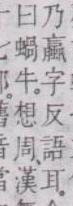 乃蠃字反語耳。
曰蝸牛。想周、漢